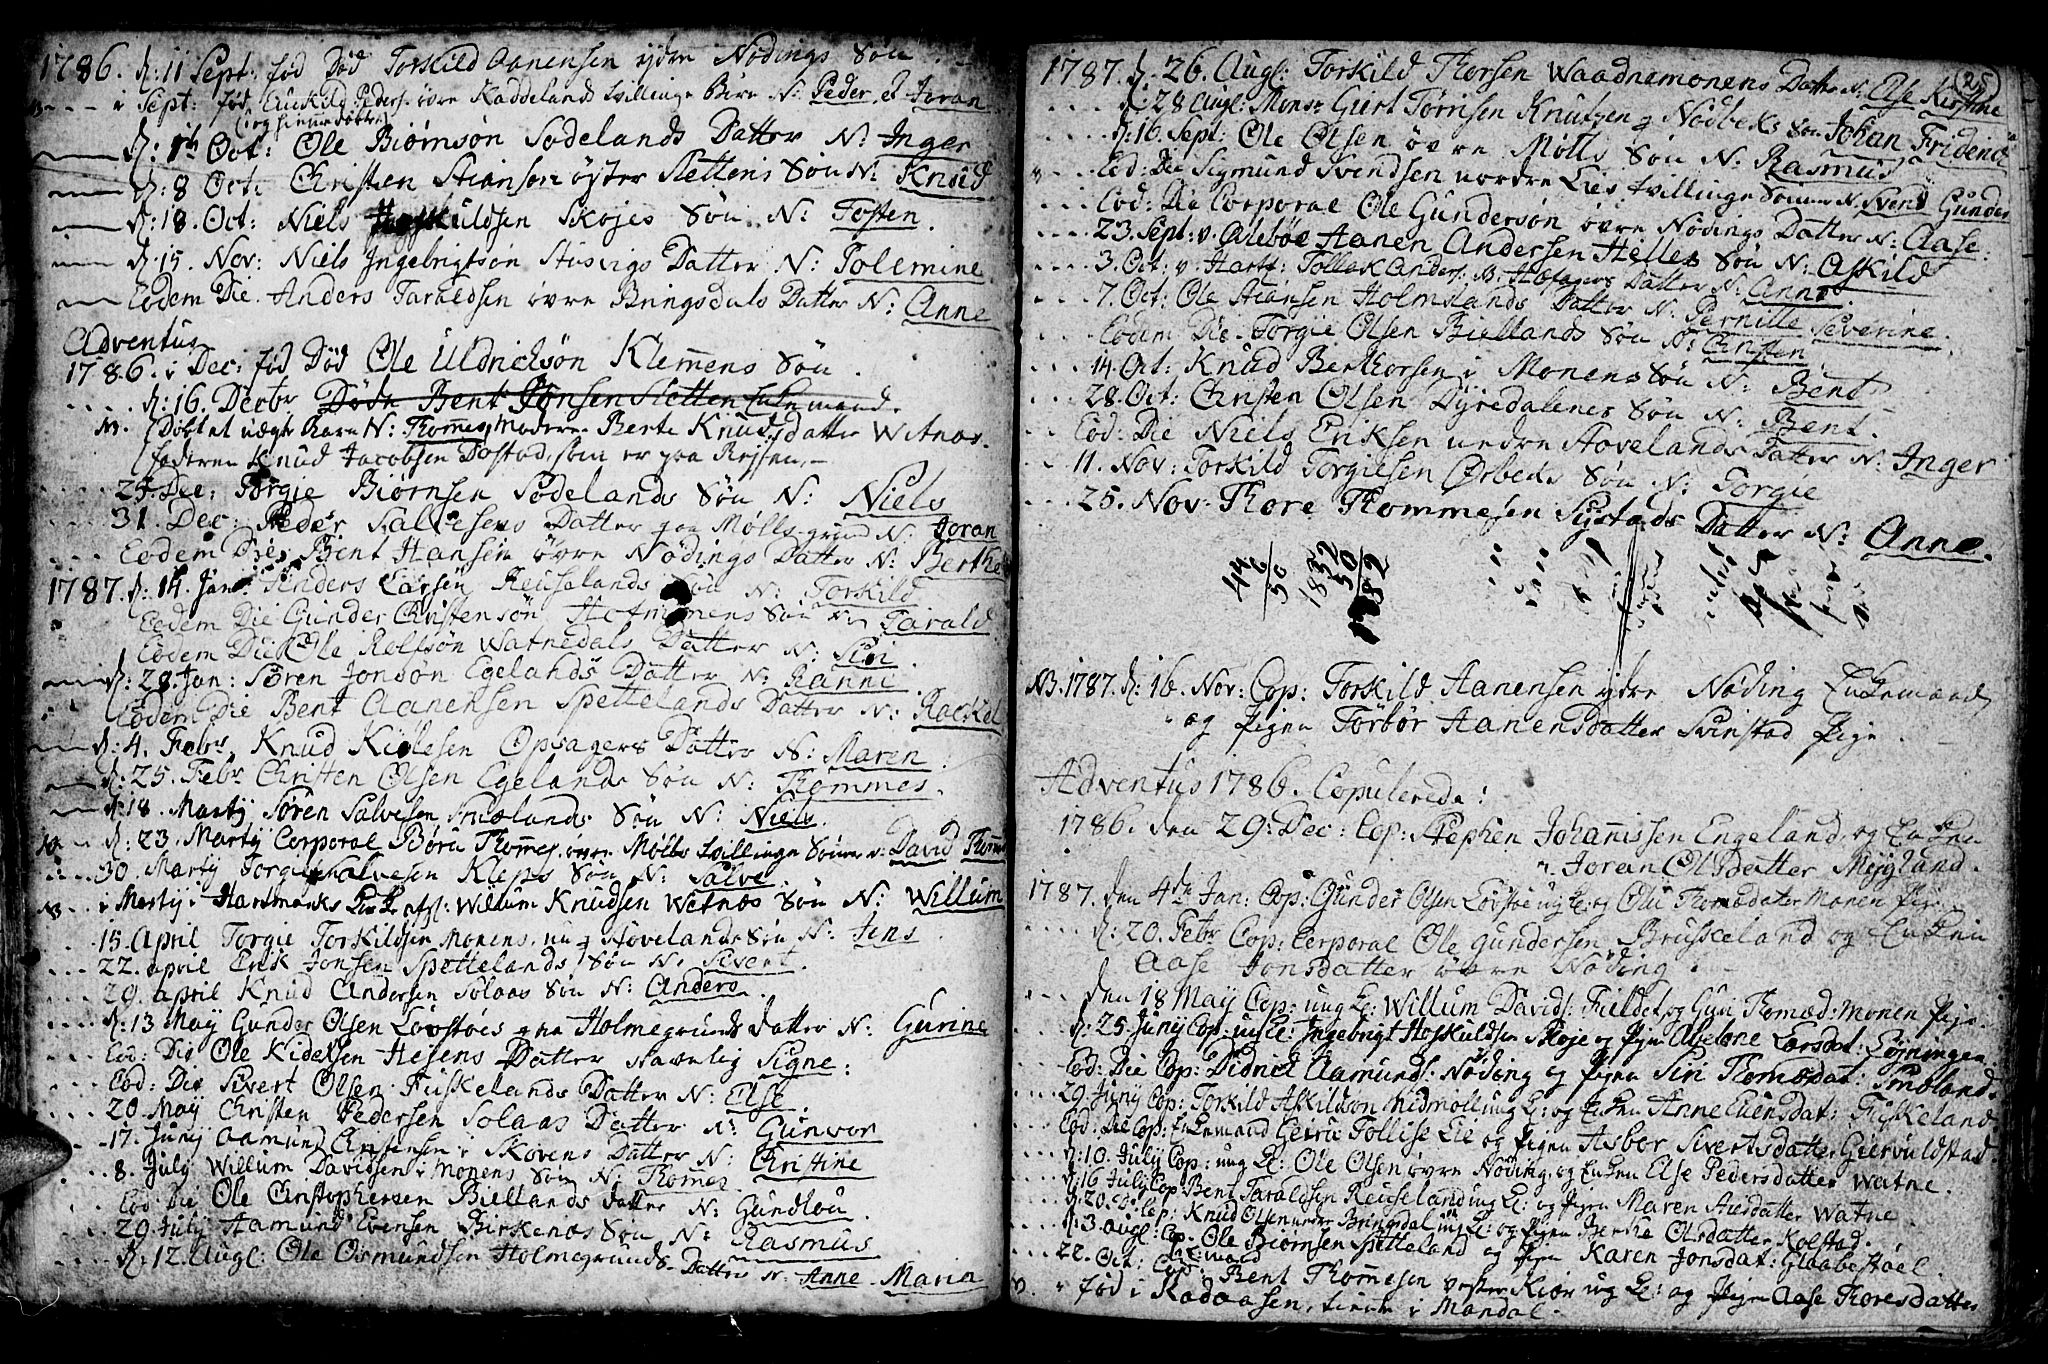 1786. d: 11 Sept: fød Død Torkild Aanensen ydre Nødings Søn
i Sept: fød Eenkild Peders: øvre Kaddelands tvillinge Børn N: Peder & Joran
(og hiemedøbte)
d: 1 Oct: Ole Biørnsøn Sodelands Datter N: Inger
d: 8 Oct: Christen Stiansen øyster Slettens Søn N: Knud
d: 18. Oct: Niels Høskuldsen Skøjes Søn N: Tosten.
d: 15. Nov: Niels Ingebrigtsøn Stusvigs Datter N: Tolemine
Eodem Die. Anders Taraldsen øvre Bringsdals Datter N: Anne
Adventus
1786. i Dec: fød Død Ole Uldrichsøn Klemens Søn.
d: 16. Decbr Døde Bent Jonsen Sletten Enkemand.
Døbt et uægte Barn N: Thomes, Moderen Berte Knudsdatter Witnæs.
faderen Knud Jacobsen Dostad, som er paa Rejsen,
Dec: Torgie Biørnsen Sodelands Søn N: Niels
31. Dec: Peder Salvesens Datter paa Mølls grund N: Joran
Eodem Die Bent Hansen øvre Nødings Datter N: Berthe
1787. d: 14. Jan: Anders Larsen Reuselands Søn N: Torkild
Eodem Die Gunder Christensøn Søn N: Tarald.
Eodem Die Ole Rolfsøn Watnedals Datter N: Siri.
d: 28. Jan: Søren Jonsøn Egelands Datter N: Ranni.
Eodem Die Bent Aanensen Spettelands Datter N: Rackel
d: 4. Febr. Knud Kidelsen Opsagers Datter N: Maren.
d: 25. Febr Christen Olsen Egelands Søn N: Thommes.
d: 18. Martÿ Søren Salvesen Søn N: Niels.
d: 23. Martÿ Corporal Børu Thomes. øvre Mølls tvillinge Sønner N: David
30. Martÿ Torgie Salvesen Kleps Søn N: Salve.
i Martÿ i Hartmarks Willum Knudsen Witnæs Søn N: Willum
15. April Torgie Torkildsen Monens, nu Stovelands Søn N: Jens.
22. april Erik Jonsen Spettelands Søn N: Sivert.
29. april Knud Andersen Solaas Søn N: Anders.
d: 13 Maÿ Gunder Olsen Løvstøes paa Holmegrunds Datter N: Gurine
Eod: Die Ole Kidelsen Hesens Datter Navnlig Signe:
Eod: Die Sivert Olsen Fuskelands Datter N: Else.
20. Maÿ Christen Pedersen Solaas Datter N: Gunvor
17. Junÿ Aamund Christensen i Skovens Datter N: Christine
8. July Willum Davidsen i Monens Søn N: Thomes.
Eod Die Ole Christophersen Biellands Datter N: Gundlou.
29. July Aamund Evensen Birkenæs Søn N: Rasmus
d: 12. Augl: Ole Osmundsen Holmegrunds Datter N: Anne Maria
25
1787. d. 26. Augl: Torkild Thorsen Waadnemonens Datter N: Ole Kirstine
d: 28 Augl: Monsr Giert Tørrisen Knutzen Nødbeks Søn Johan Friderich
d: 16. Sept: Ole Olsen øvre Mølls Søn N: Rasmus
Eod: Die Sigmund Svendsen nordre Lies tvillinge Sønner N. Svend Gunder
Eod: Die Corporal Ole Gundersøn øvre Nødings Datter N: Aase.
23. Sept: v. Ørebøe Aanen Andersen Helles Søn N: Askild
3. Oct: v. Hartf: Tollek Anders: Datter N: Anne
7. Oct: Ole Stiansen Holmslands Datter N: Pernille Severine
Eodem Die Torgie Olsen Biellands Søn N: Christen
14. Oct: Knud Berthorsen i Monens Søn N: Bent
28. Oct: Christen Olsen Dyredalenes Søn N: Bent.
Eod: Die Niels Eriksen nedre Stovelands Datter N: Inger
11. Nov: Torkild Torgiesen Ørbeks Søn N: Torgie
25. Nov: Thore Thommesen Systads Datter N: Anne.
44
6
50
1832
50
1782
NB. 1787. d: 16. Nov: Cop: Torkild Aanensen ydre Nøding Enkemand
og Pigen Torbør Aanensdatter Svinstad Pige.
Adventus 1786. Copulerede:
1786. den 29: Dec: Cop: Stephen Johanissen Engeland, og Enken
Joran Olsdatter Møÿland.
1787. den 4de Jan: Cop: Gunder Olsen Løvstøe ung K: og Olu Thomædatter Monen Pige.
d: 20. Febr Cop: Corporal Ole Gundersen Bruskeland og Enken
Aase Jonsdatter øvre Nøding.
den 18 Maÿ Cop: ung K: Willum Davids: Fieldet, og Guri Thomæd: Monen Pige.
d: 25. Junÿ Cop: ung K: Ingebrigt Høskuldsen Skøje og Pigen Larsdat: Løjningen.
Eod: Die Cop: Didrick Aamunds: Nøding og Pigen Siri Thomædat:
29. Junÿ Cop: Torkild Askildsøn hidmoll ung K: og Enken Anne Evensdat: Fuskeland
Eod: Die Cop: Enkemand Gerru Tollise Lie og Pigen Asbor Sivertsdatter Giervuldstad.
d: 10. July Cop: ung K: Ole Olsen øvre Nøding, og Enken Else Pedersdatter Watne.
d: 16 July Cop: Bent Taraldsen Reuseland ung K: og Pigen Maren Datter Watne.
d: 20. Cop: Knud Olsen nedre Bringsdal ung K: og Pigen Berthe Olsdatter Kolstad.
d: 3. augl: Cop. Ole Biørnsen Spetteland og Pigen Karen Jonsdat: Glaabestøel.
22. Oct: Cop: Bent Thommesen vester Kiør ung K: og Pigen Aase Thoresdatter
fød i Kadaasen, tiente i Mandal.